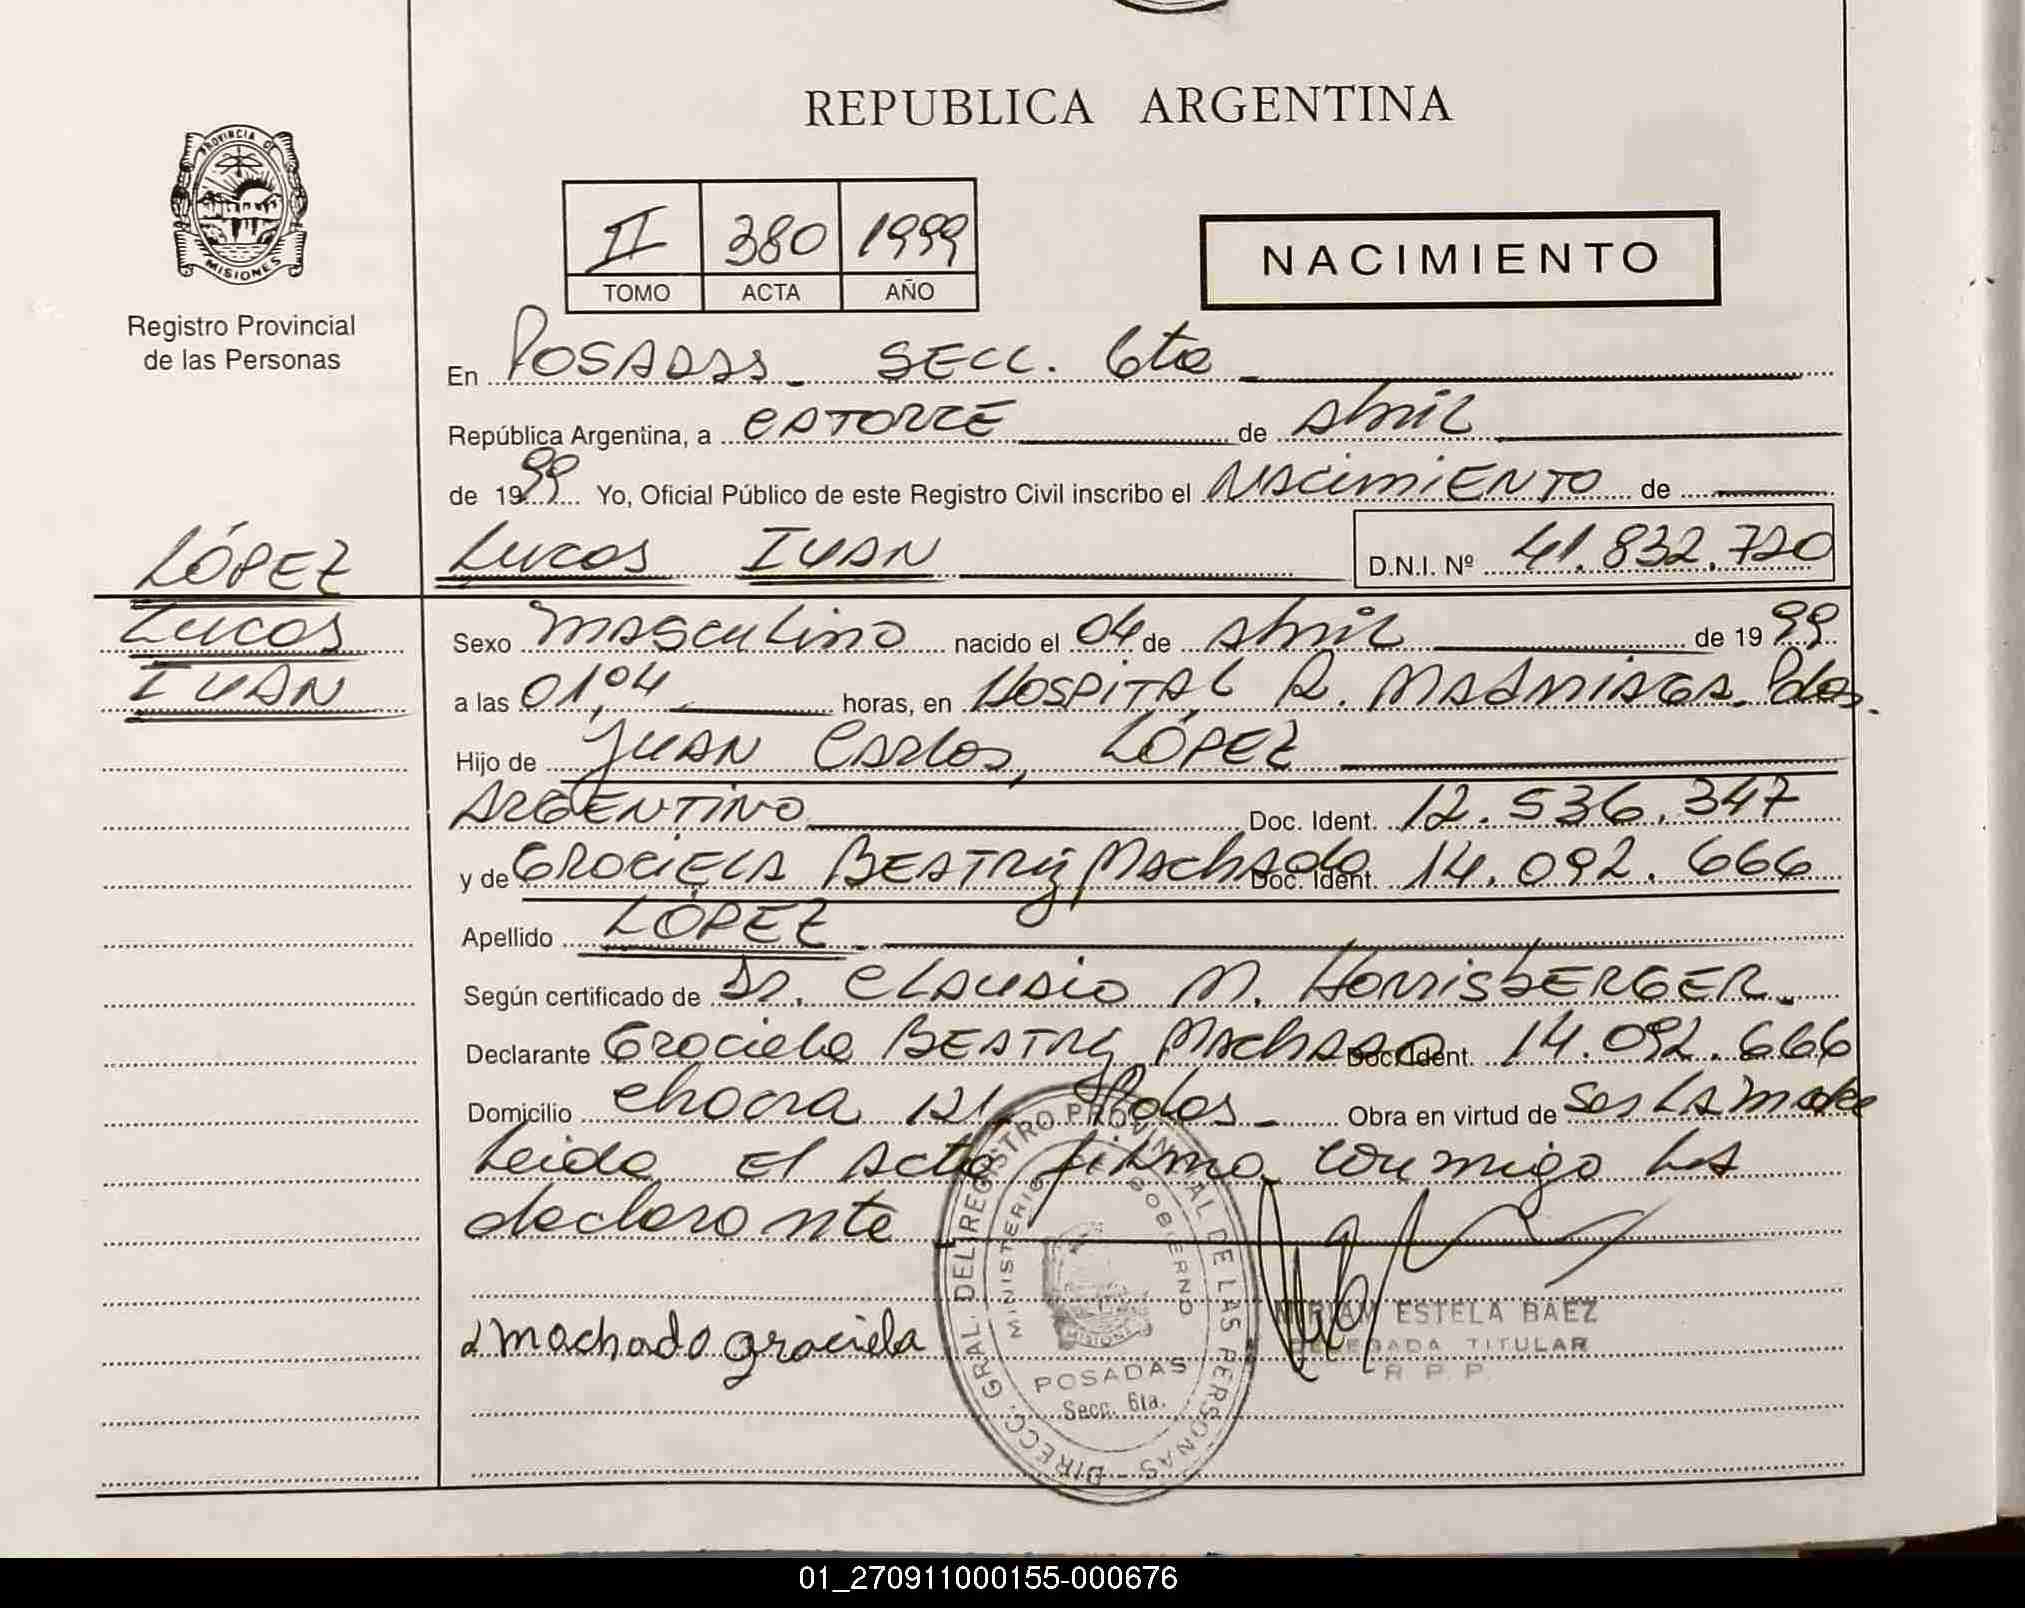 REPUBLICA ARGENTINA
PROVINCIA DE
MISIONES
Registro Provincial
de las Personas
II 380 1999
TOMO ACTA AÑO
NACIMIENTO
En POSADAS SECC. 6ta
República Argentina, a CATORCE de Abril
de 1999 Yo, Oficial Público de este Registro Civil inscribo el NACIMIENTO de
LÓPEZ
Lucas
IVAN
Lucas IVAN D.N.I. Nº 41.832.720
Sexo masculino nacido el 04 de Abril de 1999
a las 01,04 horas, en HOSPITAL R. MADARIAGA. Pdas.
Hijo de JUAN CARLOS, LÓPEZ
ARGENTINO Doc. Ident. 12.536.347
y de GRACIELA BEATRIZ Machado Doc. Ident. 14.092.666
Apellido LÓPEZ
Según certificado de Dr. CLAUDIO M. HORRISBERGER
Declarante Graciela BEATRIZ Machado Doc. Ident. 14.092.666
Domicilio 121 Pdas Obra en virtud de Ser LA madre
Leida El Acta firma conmigo LA
declarante
DIRECC. GRAL. DEL REGISTRO PROVINCIAL DE LAS PERSONAS
MINISTERIO DE GOBIERNO
MISIONES
POSADAS
Secc. 6ta.
machado graciela
MIRIAM ESTELA BAEZ
DELEGADA TITULAR
R P P
01_270911000155-000676